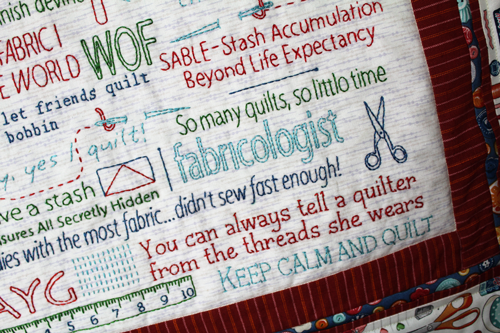 FABRIC I
E WORLD
WOF
SABLE-Stash Accumulation
Beyond Life Expectancy
let friends quilt
bobbin
So many quilts, so little time
y, yes I quilt!
fabricologist
ve a stash
sures All Secretly Hidden
ies with the most fabric...didn't sew fast enough!
You can always tell a quilter
from the threads she wears
KEEP CALM AND QUILT
AYG
4 5 6 7 8 9 10